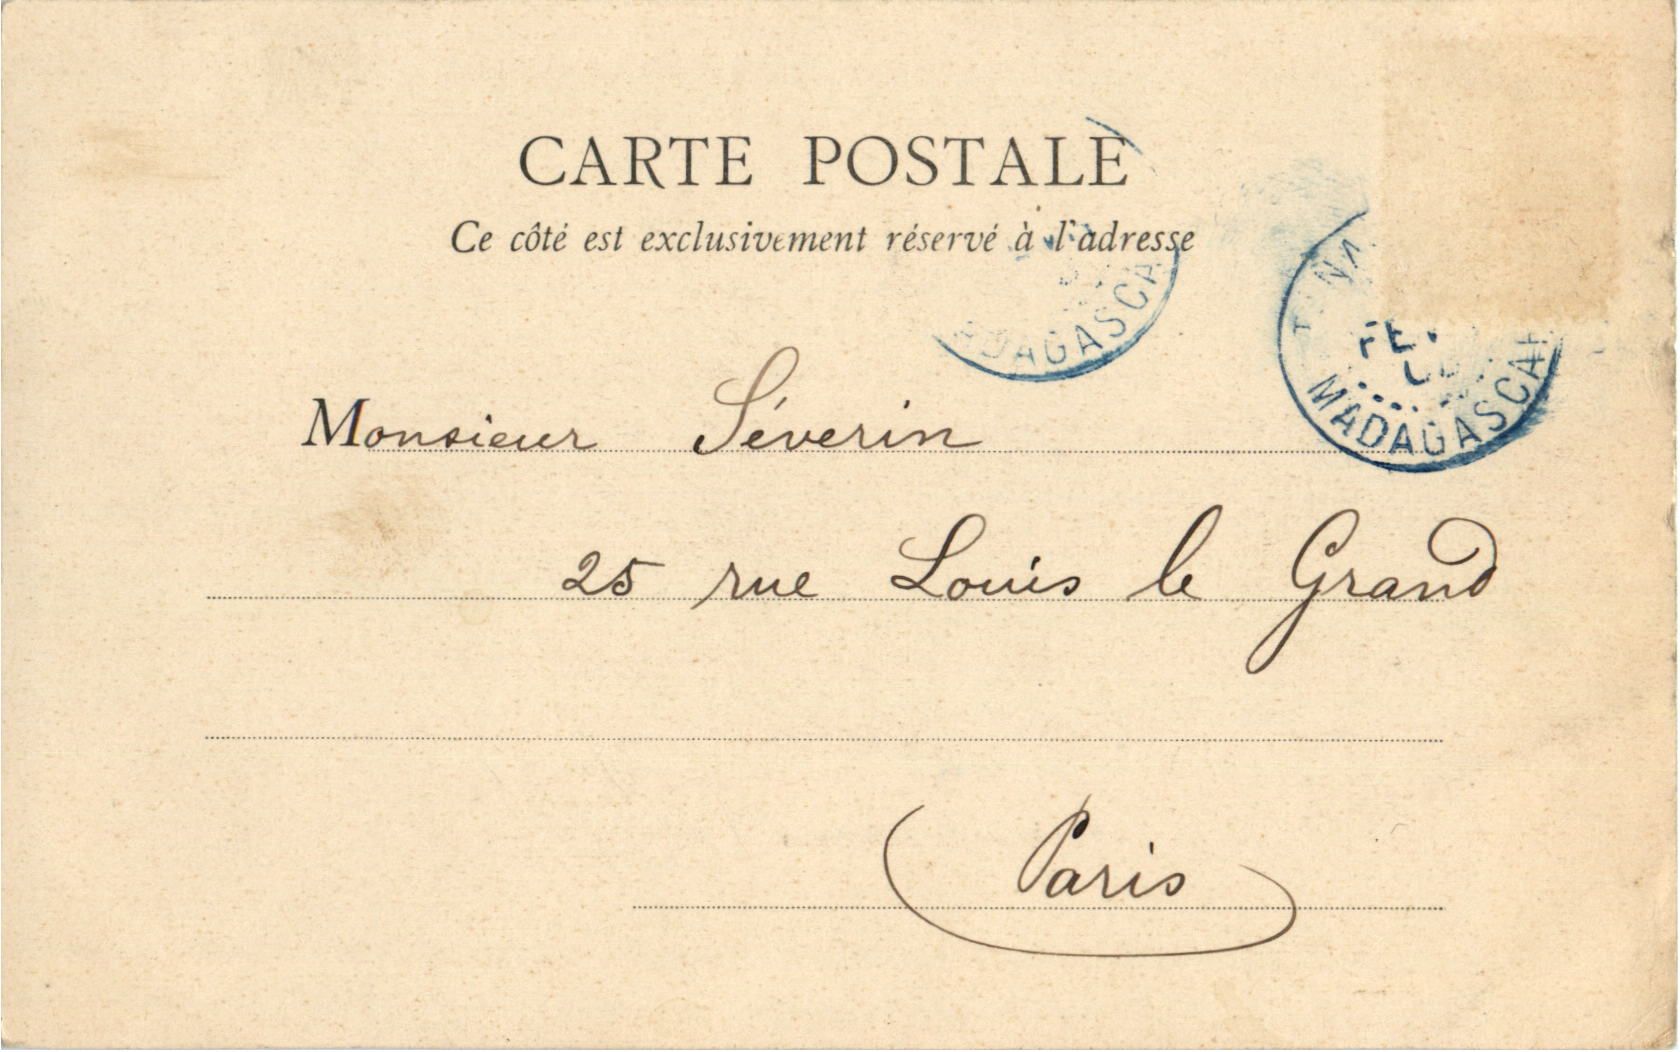 CARTE POSTALE
Ce côté est exclusivement réservé à l'adresse
MADAGASCA
MADAGASCAR
Monsieur Séverin
25 rue Louis le Grand
Paris